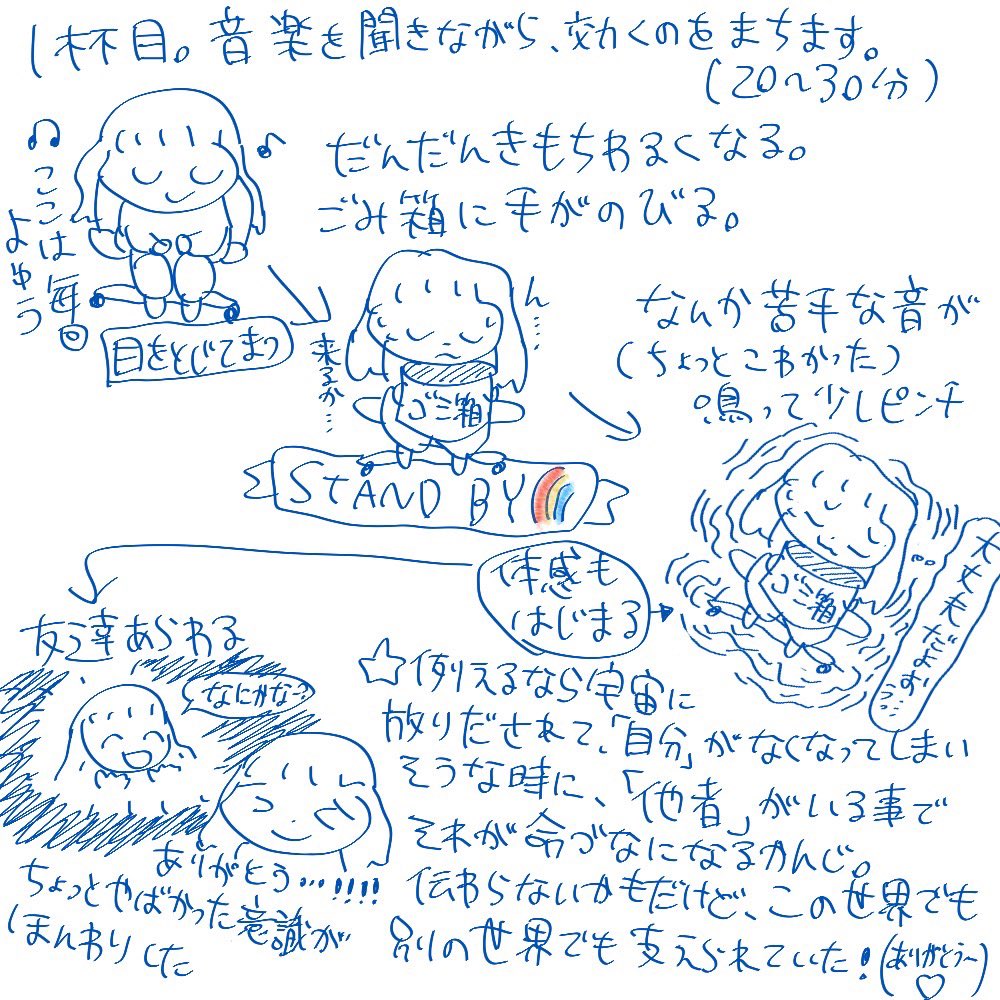 1杯目。音楽を聞きながら、効くのをまちます。
(20〜30分)
♫ここは毎回
よゆう
♪
目をとじてまつ
だんだんきもちわるくなる。
ごみ箱に手がのびる。
ん…
来るか…
ゴミ箱
STAND BY
なんか苦手な音が
(ちょっとこわかった)
鳴って少しピンチ
ゴミ箱
大丈夫だよお…
体感も
はじまる
友達あらわる
なにかな?
ありがとう…!!!!
ちょっとやばかった意識が
ほんわりした
☆例えるなら宇宙に
放りだされて、「自分」がなくなってしまい
そうな時に、「他者」がいる事で
それが命づなになるかんじ。
伝わらないかもだけど、この世界でも
別の世界でも支えられていた!(ありがとう〜♡)